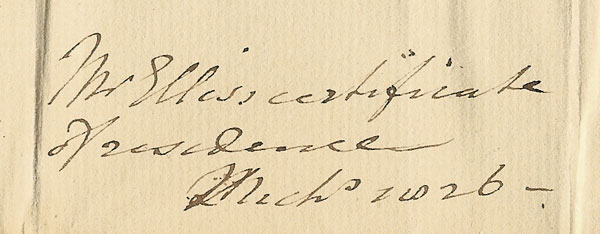 Mr Ellis's certificate
of residence
Mich<sup>s</sup> 1826 –